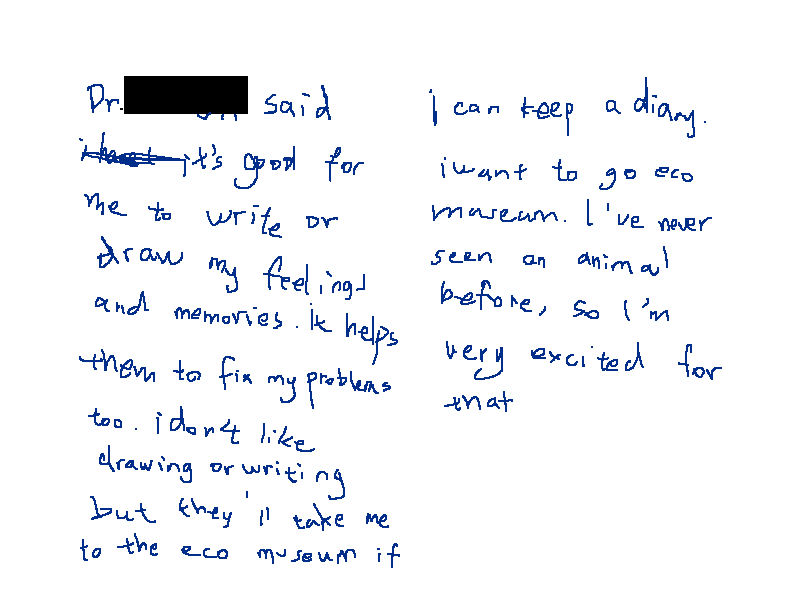 Dr. said
it's good for
me to write or
draw my feelings
and memories. It helps
them to fix my problems
too. i don't like
drawing or writing
but they'll take me
to the eco museum if
I can keep a diary.
i want to go eco
museum. I've never
seen an animal
before, so I'm
very excited for
that